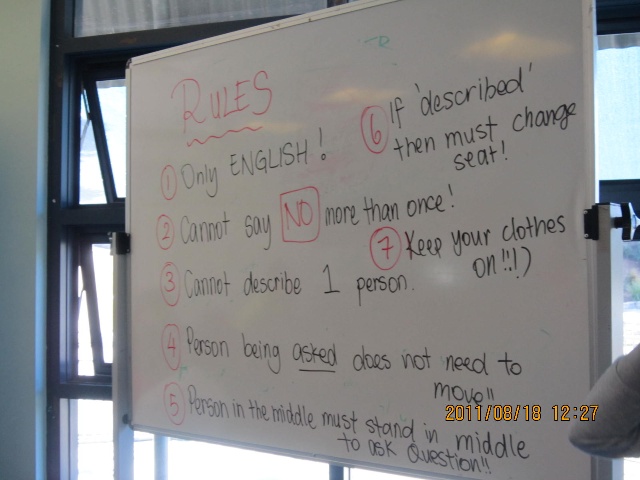 RULES
① Only ENGLISH!
② Cannot say NO more than once!
③ Cannot describe 1 person.
④ Person being asked does not need to
move!!
⑤ Person in the middle must stand in middle
to ask question!!
⑥ If 'described'
then must change
seat!
⑦ Keep your clothes
on!!!)
2011/08/18 12:27